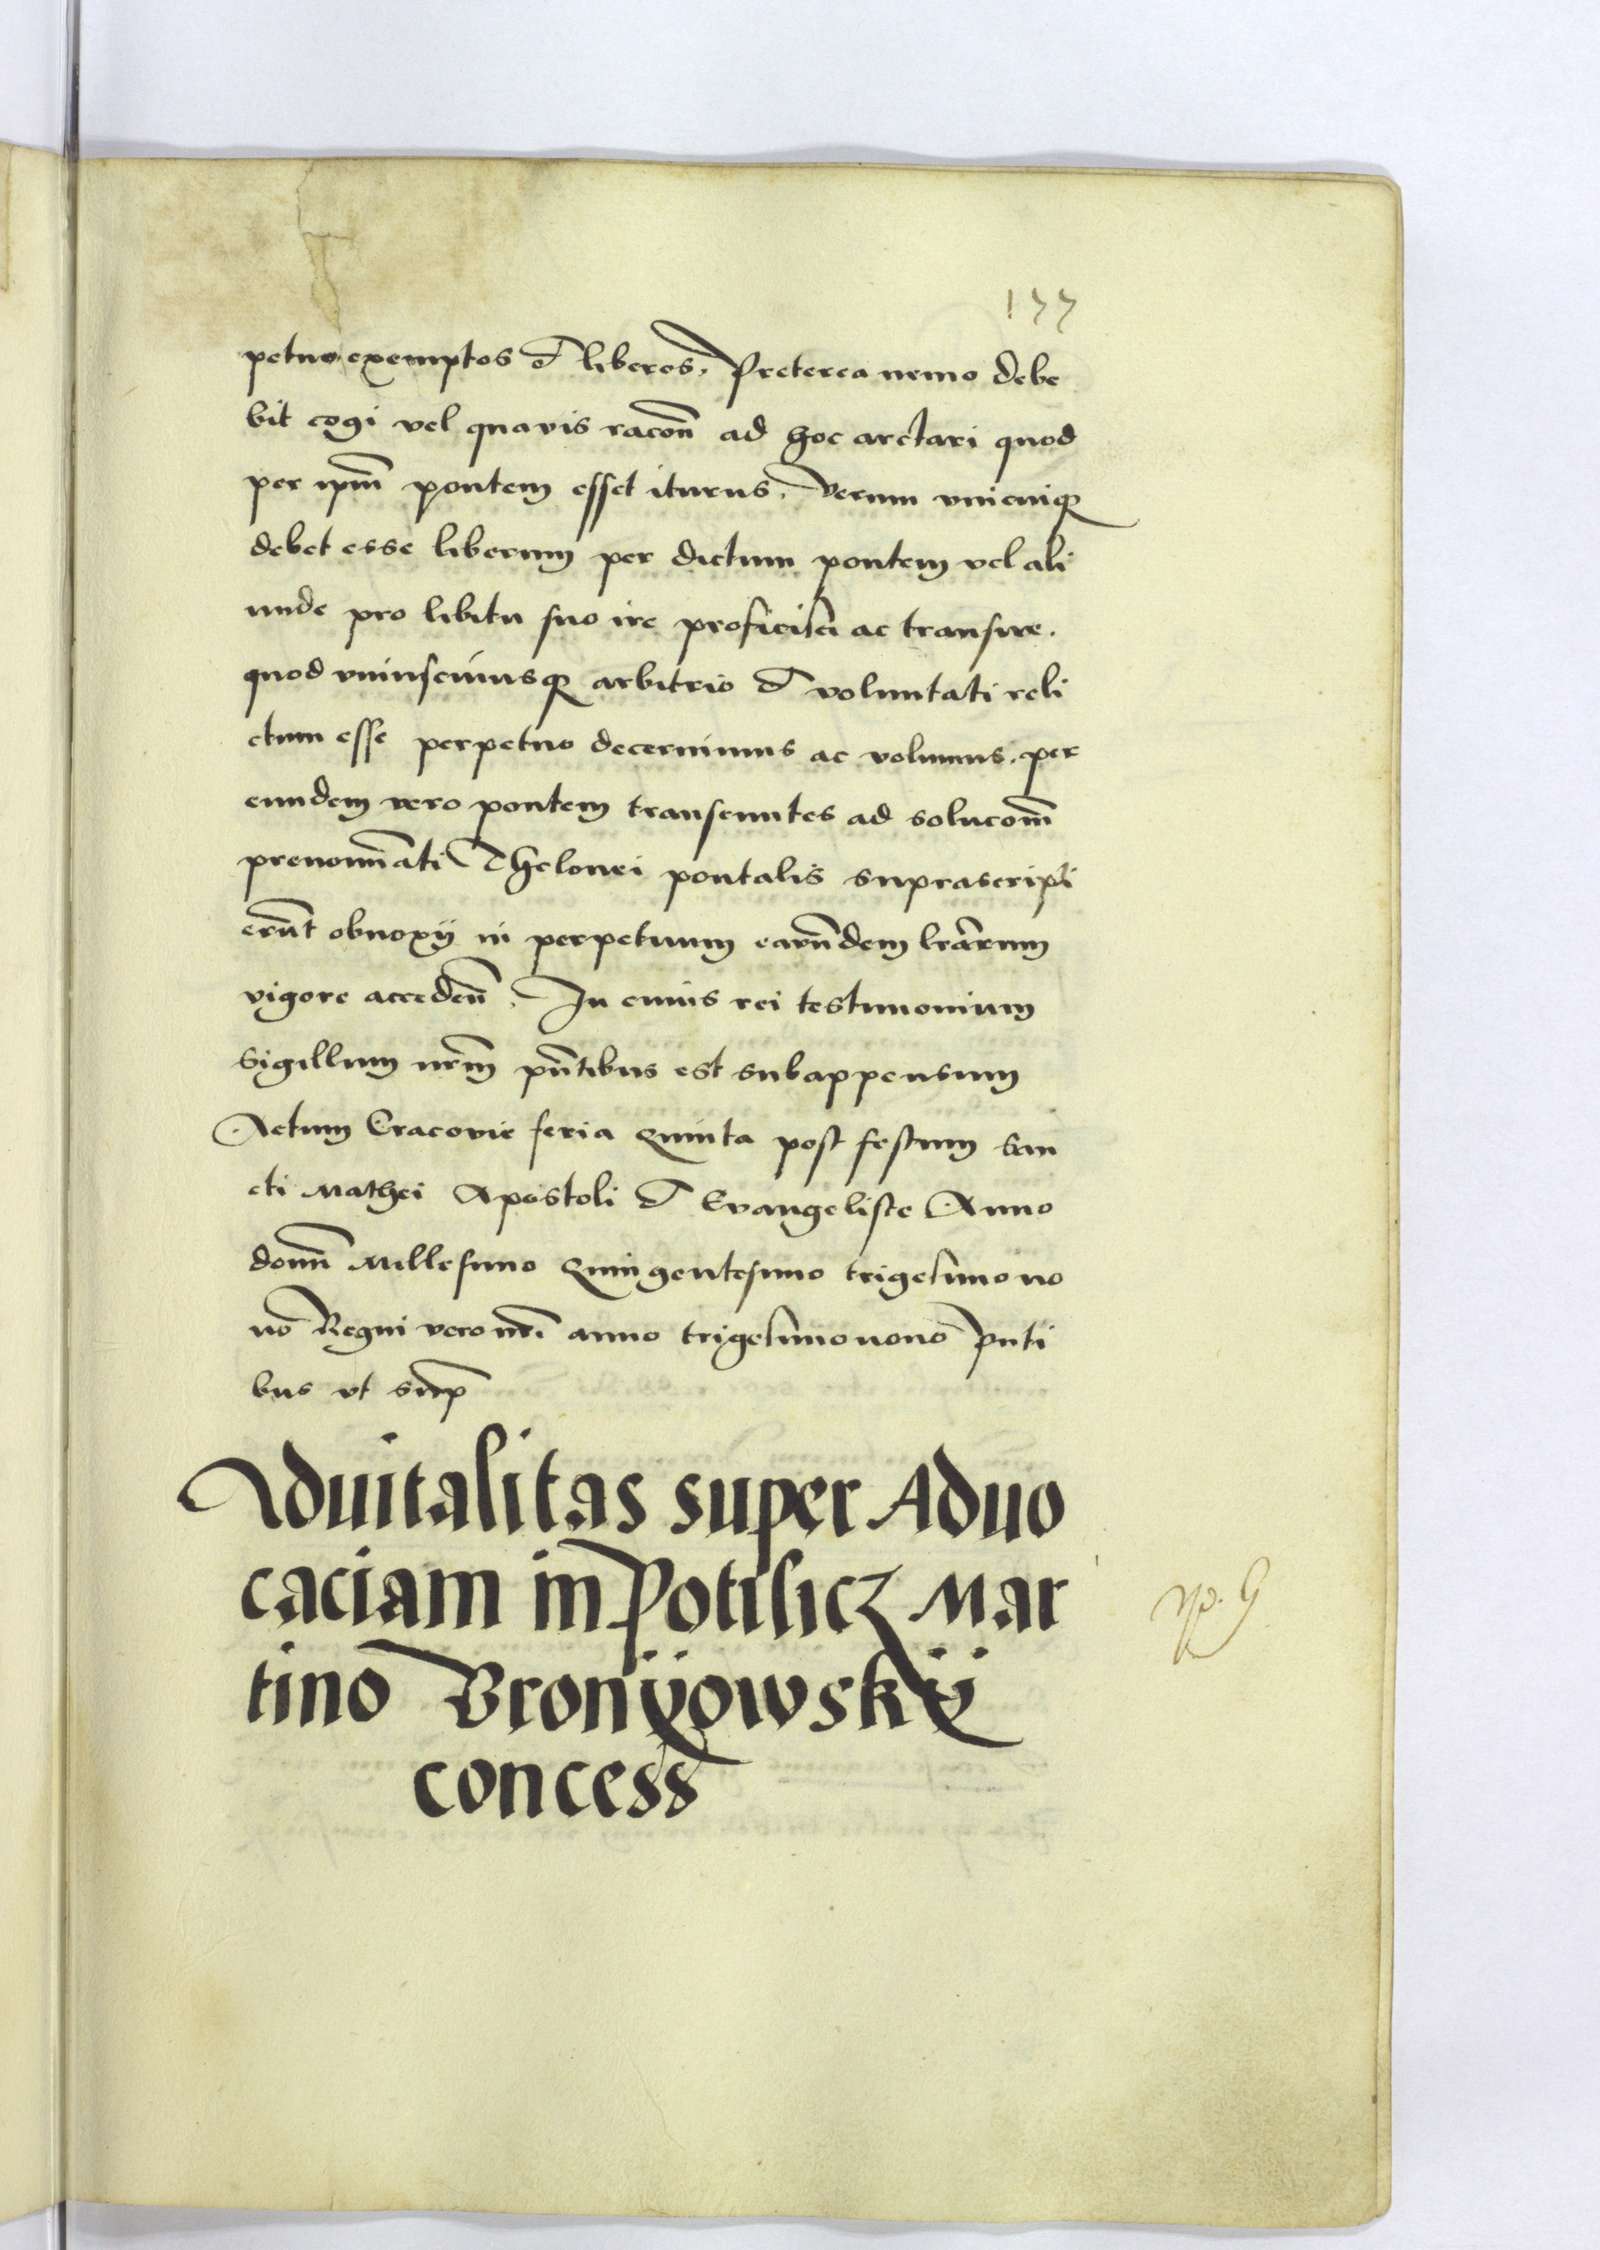 177
petuo exemptos et liberos. Preterea nemo debe
bit cogi vel quavis racōn ad hoc arctari quod
per ipm̄ pontem esset iturus. Verum unicuiq
debet esse liberum per dictum pontem vel ali
unde pro libitu suo ire proficisci ac transire.
quod uniuscuiusq arbitrio et voluntati reli
ctum esse perpetuo decernimus ac volumus. per
eundem vero pontem transeuntes ad solucōm
prenoīati Thelonei pontalis suprascripti
erūt obnoxij in perpetuum earūdem lrārum
vigore acceden̄. In cuius rei testimonium
Sigillum nrm̄ pn̄tibus est subappensum
Actum Cracovie feria Quinta post festum san
cti Mathei Apostoli et Evangeliste Anno
domī Millesimo Quingentesimo trigesimo no
no Regni vero nrī anno trigesimo nono Pnti
bus ut sup
Aduitalitas super Aduo
caciam in Potilicz Mar
tino Bronyowsky
concess